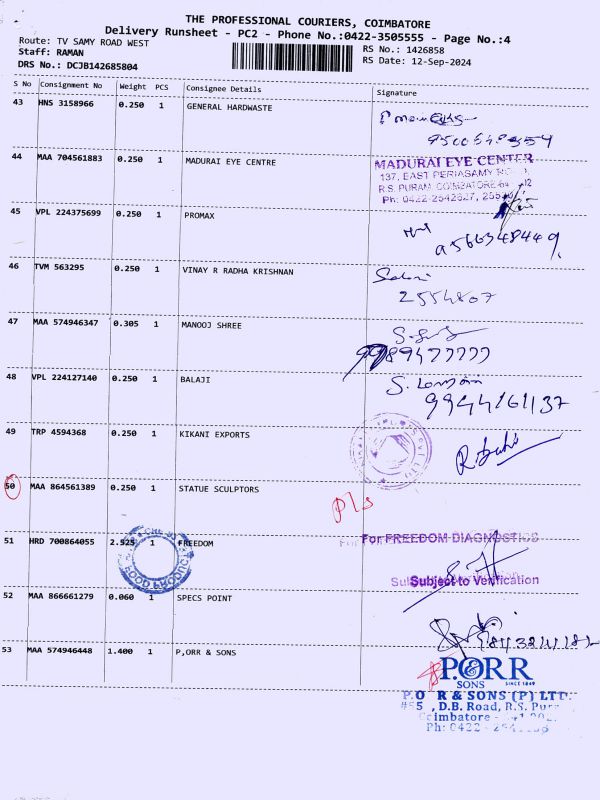 THE PROFESSIONAL COURIERS, COIMBATORE
Delivery Runsheet - PC2 - Phone No.:0422-3505555 - Page No.:4
Route: TV SAMY ROAD WEST
RS No.: 1426858
Staff: RAMAN
RS Date: 12-Sep-2024
DRS No.: DCJB142685804
S No Consignment No Weight PCS Consignee Details Signature
43 HNS 3158966 0.250 1 GENERAL HARDWASTE
44 MAA 704561883 0.250 1 MADURAI EYE CENTRE
MADURAI EYE CENTER
137, EAST PERIASAMY
R.S. PURAM, COIMBATORE
Ph: 0422-2542627,
45 VPL 224375699 0.250 1 PROMAX
9566348449
46 TVM 563295 0.250 1 VINAY R RADHA KRISHNAN
2554807
47 MAA 574946347 0.305 1 MANOOJ SHREE
9989477777
48 VPL 224127140 0.250 1 BALAJI
9944161137
49 TRP 4594368 0.250 1 KIKANI EXPORTS
50 MAA 864561389 0.250 1 STATUE SCULPTORS
Pls
51 HRD 700864055 2.525 1 FREEDOM
For FREEDOM DIAGNOSTICS
Subject to Verification
52 MAA 866661279 0.060 1 SPECS POINT
53 MAA 574946448 1.400 1 P,ORR & SONS
P.ORR
SONS SINCE 1849
P.O R & SONS (P) LTD
#55 , D.B. Road, R.S. Pur
Coimbatore
Ph: 0422